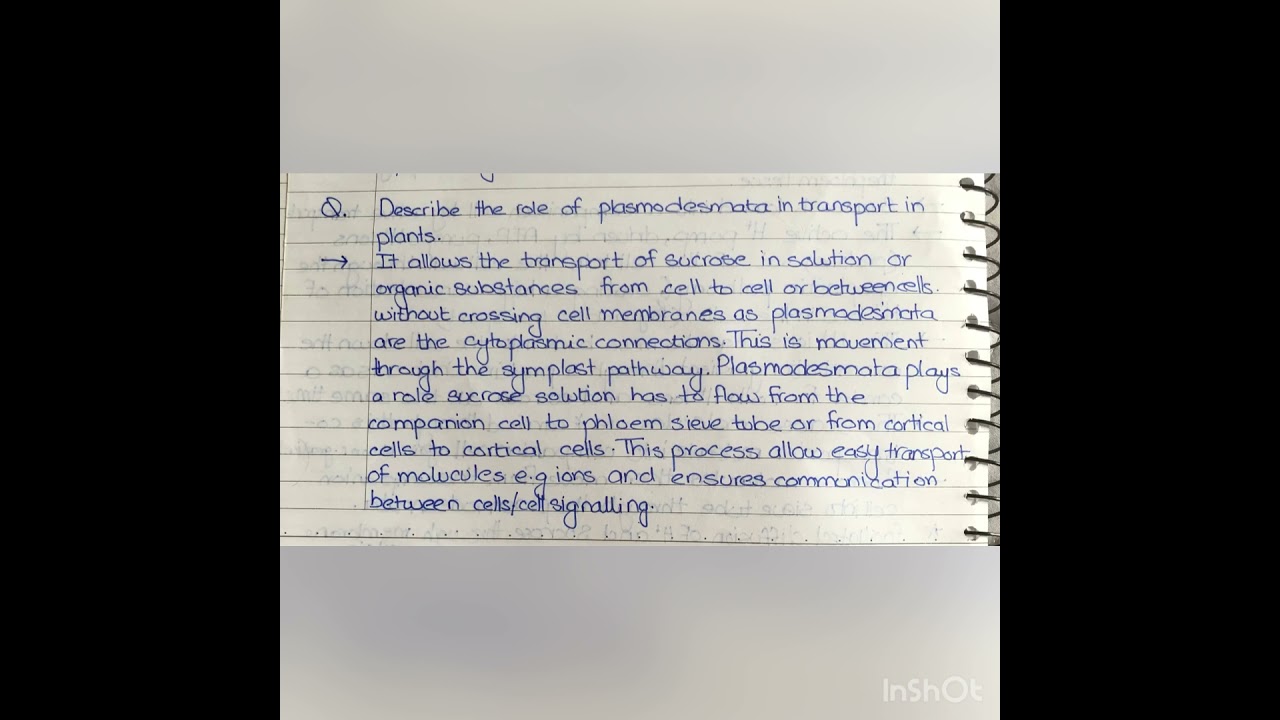 Q. Describe the role of plasmodesmata in transport in
plants.
→ It allows the transport of sucrose in solution or
organic substances from cell to cell or between cells.
without crossing cell membranes as plasmodesmata
are the cytoplasmic connections. This is movement
through the symplast pathway. Plasmodesmata plays
a role sucrose solution has to flow from the
companion cell to phloem sieve tube or from cortical
cells to cortical cells. This process allow easy transport
of molucules e.g ions and ensures communication
between cells/cell signalling.
InShOt